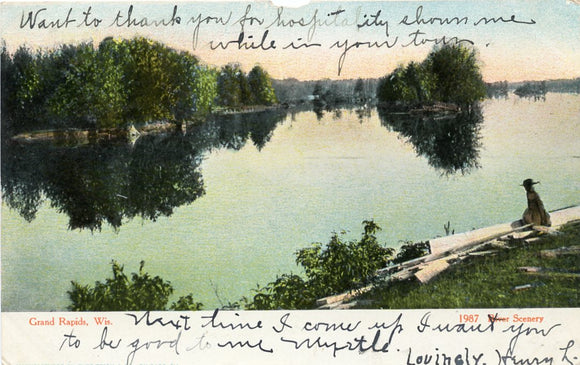 Want to thank you for hospitality shown me
while in your town.
Grand Rapids, Wis.
1987 River Scenery
Next time I come up I want you
to be good to me Myrtle.
Lovingly, Henry L.